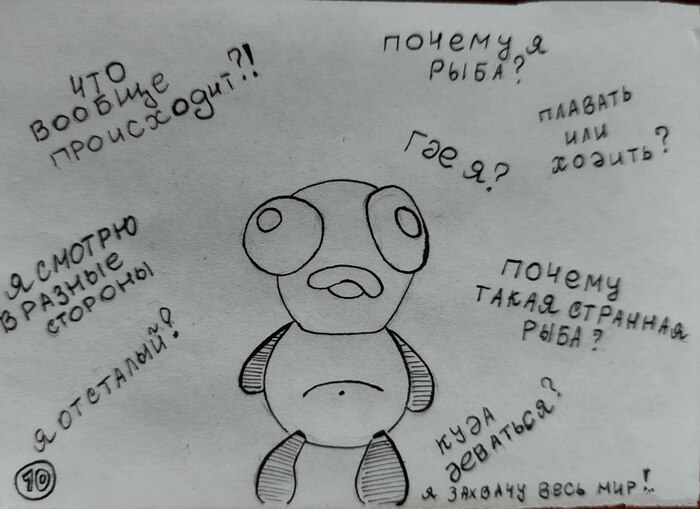 ЧТО
ВООБЩЕ
ПРОИСХОДИТ?!
ПОЧЕМУ Я
РЫБА?
ГДЕ Я?
ПЛАВАТЬ
ИЛИ
ХОДИТЬ?
Я СМОТРЮ
В РАЗНЫЕ
СТОРОНЫ
ПОЧЕМУ
ТАКАЯ СТРАННАЯ
РЫБА?
Я ОТСТАЛЫЙ?
КУДА
ДЕВАТЬСЯ?
Я ЗАХВАЧУ ВЕСЬ МИР!..
10